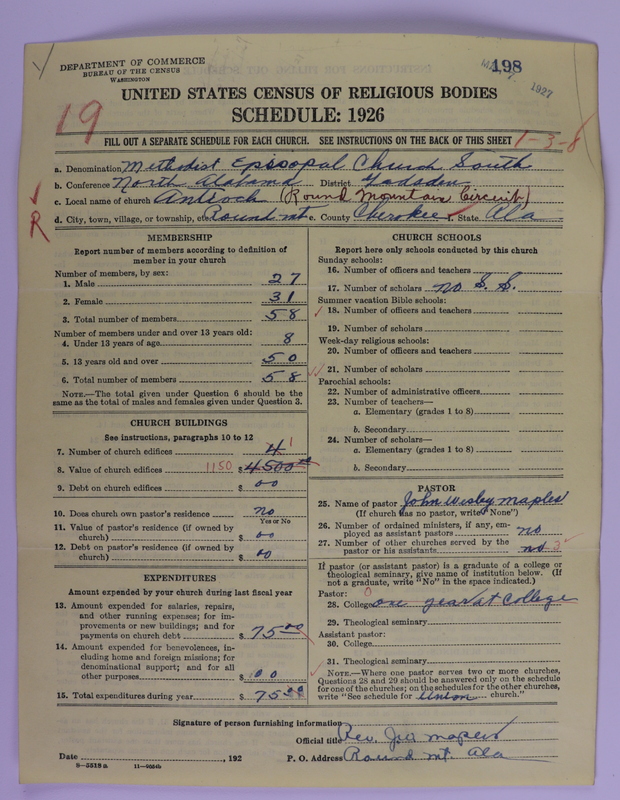 DEPARTMENT OF COMMERCE
BUREAU OF THE CENSUS
WASHINGTON
198
1927
UNITED STATES CENSUS OF RELIGIOUS BODIES
SCHEDULE: 1926
19
FILL OUT A SEPARATE SCHEDULE FOR EACH CHURCH. SEE INSTRUCTIONS ON THE BACK OF THIS SHEET
1-3-8
a. Denomination Methodist Episcopal Church South
b. Conference North Alabama District Gadsden
c. Local name of church Antioch (Round Mountain Circuit)
R
d. City, town, village, or township, etc. Round mt e. County Cherokee f. State Ala
MEMBERSHIP
Report number of members according to definition of
member in your church
Number of members, by sex:
1. Male 27
2. Female 31
3. Total number of members 58
Number of members under and over 13 years old:
4. Under 13 years of age 8
5. 13 years old and over 50
6. Total number of members 58
NOTE.—The total given under Question 6 should be
same as the total of males and females given under Question 3.
CHURCH BUILDINGS
See instructions, paragraphs 10 to 12
7. Number of church edifices 4 1
8. Value of church edifices 1150 $ 4500 00
9. Debt on church edifices $ 00
10. Does church own pastor's residence no
Yes or No
11. Value of pastor's residence (if owned by
church) $ 00
12. Debt on pastor's residence (if owned by
church) $ 00
EXPENDITURES
Amount expended by your church during last fiscal year
13. Amount expended for salaries, repairs,
and other running expenses; for im-
provements or new buildings; and for
payments on church debt $ 75 00
14. Amount expended for benevolences, in-
cluding home and foreign missions; for
denominational support; and for all
other purposes $ 00
15. Total expenditures during year $ 75 00
CHURCH SCHOOLS
Report here only schools conducted by this church
Sunday schools:
16. Number of officers and teachers
17. Number of scholars no S. S.
Summer vacation Bible schools:
18. Number of officers and teachers
19. Number of scholars
Week-day religious schools:
20. Number of officers and teachers
21. Number of scholars
Parochial schools:
22. Number of administrative officers
23. Number of teachers—
a. Elementary (grades 1 to 8)
b. Secondary
24. Number of scholars—
a. Elementary (grades 1 to 8)
b. Secondary
PASTOR
25. Name of pastor John Wesby Maples
(If church has no pastor, write "None")
26. Number of ordained ministers, if any, em-
ployed as assistant pastors no
27. Number of other churches served by the
pastor or his assistants no 3
If pastor (or assistant pastor) is a graduate of a college or
theological seminary, give name of institution below. (If
not a graduate, write "No" in the space indicated.)
Pastor:
28. College 0 one year at College
29. Theological seminary
Assistant pastor:
30. College
31. Theological seminary
NOTE.—Where one pastor serves two or more churches,
Questions 28 and 29 should be answered only on the schedule
for one of the churches; on the schedules for the other churches,
write "See schedule for Union church."
Signature of person furnishing information
Official title Rev. J.W. Maples
Date , 192 P. O. Address Round mt. Ala
8—5518 a 11—9054b